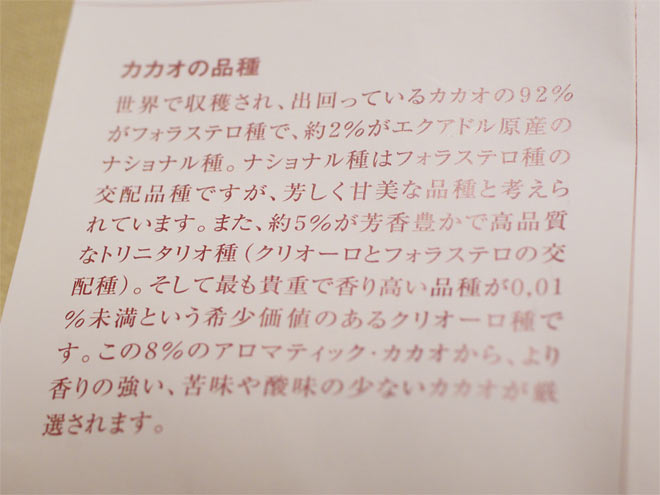 カカオの品種
世界で収穫され、出回っているカカオの92%
がフォラステロ種で、約2%がエクアドル原産の
ナショナル種。ナショナル種はフォラステロ種の
交配品種ですが、芳しく甘美な品種と考えら
れています。また、約5%が芳香豊かで高品質
なトリニタリオ種(クリオーロとフォラステロの交
配種)。そして最も貴重で香り高い品種が0,01
%未満という希少価値のあるクリオーロ種で
す。この8%のアロマティック・カカオから、より
香りの強い、苦味や酸味の少ないカカオが厳
選されます。